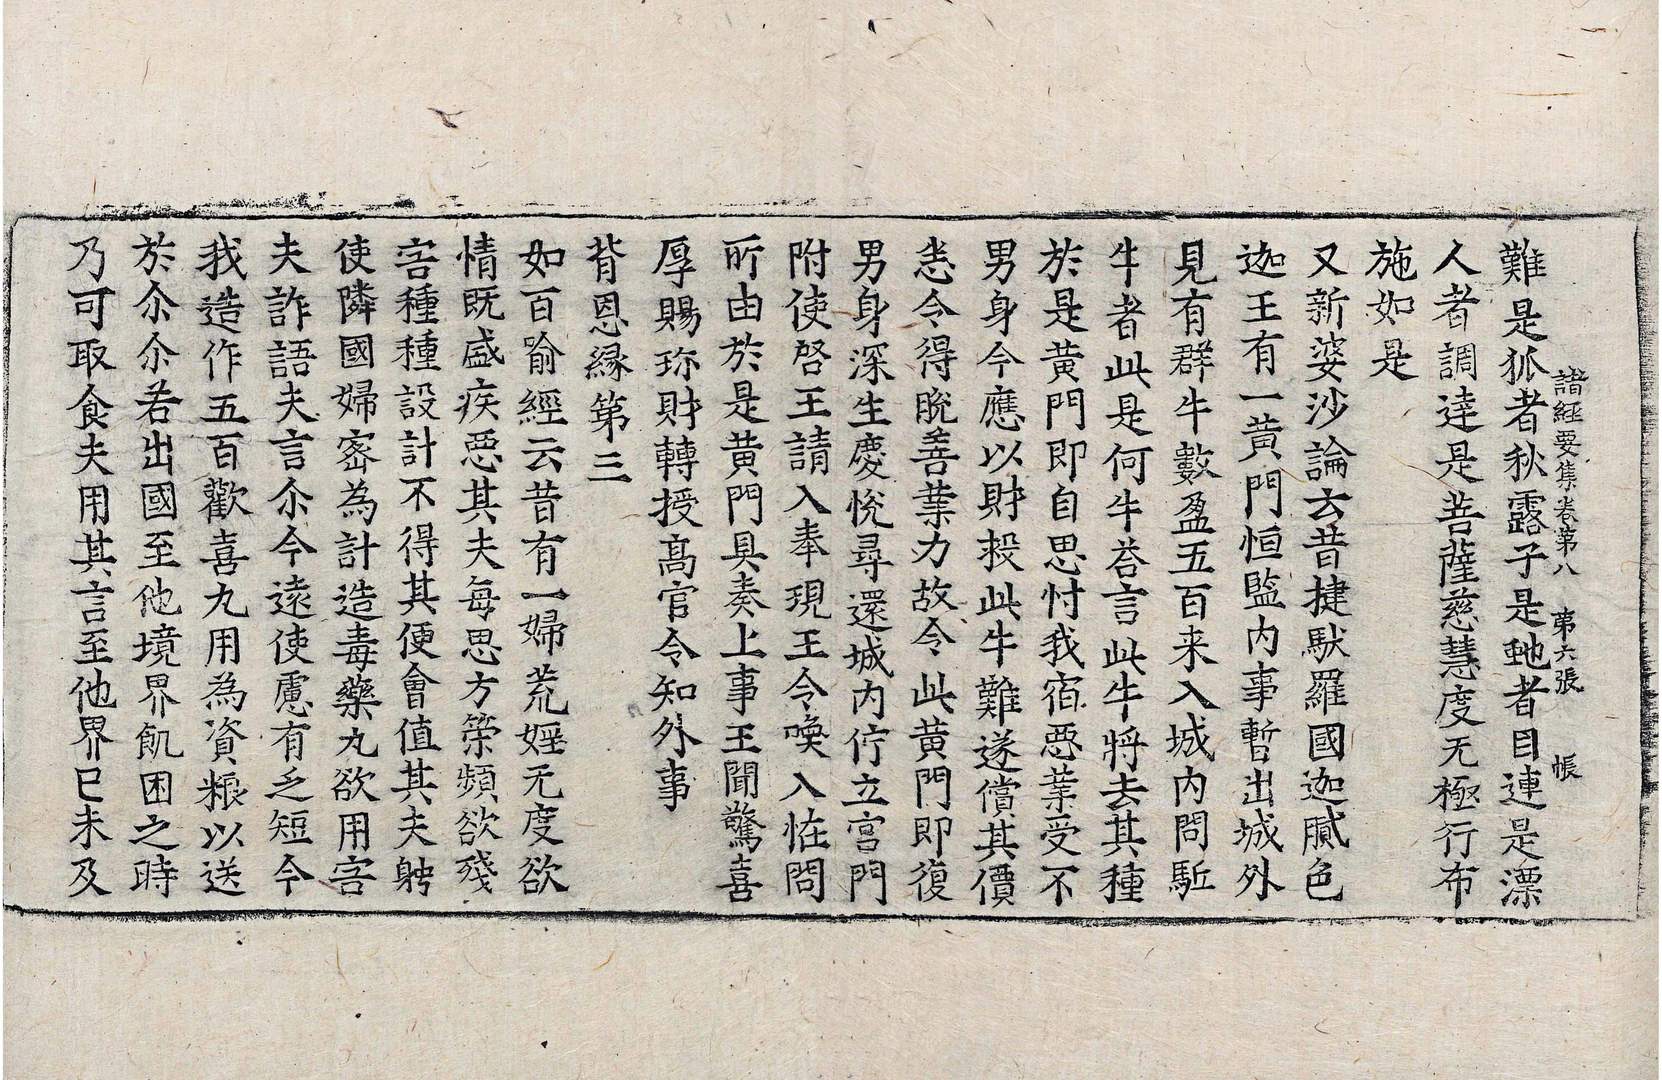 諸經要集卷第八　第六張　帳
難是狐者秋露子是虵者目連是漂
人者調達是菩薩慈慧度无極行布
施如是
又新婆沙論云昔揵馱羅國迦膩色
迦王有一黄門恒監内事暫出城外
見有群牛數盈五百来入城内問駈
牛者此是何牛荅言此牛將去其種
於是黄門即自思忖我宿惡業受不
男身今應以財捄此牛難遂償其價
悉令得脫善業力故令此黄門即復
男身深生慶悅尋還城内佇立宫門
附使啓王請入奉現王令喚入恠問
所由於是黄門具奏上事王聞驚喜
厚賜珎財轉授髙官令知外事
背恩縁第三
如百喻經云昔有一婦荒婬无度欲
情既盛疾惡其夫每思方筞頻欲殘
害種種設計不得其便會值其夫躭
使隣國婦宻為計造毒藥丸欲用害
夫詐語夫言尒今遠使慮有乏短今
我造作五百歡喜丸用為資粮以送
於尒尒若出國至他境界飢困之時
乃可取食夫用其言至他界已未及